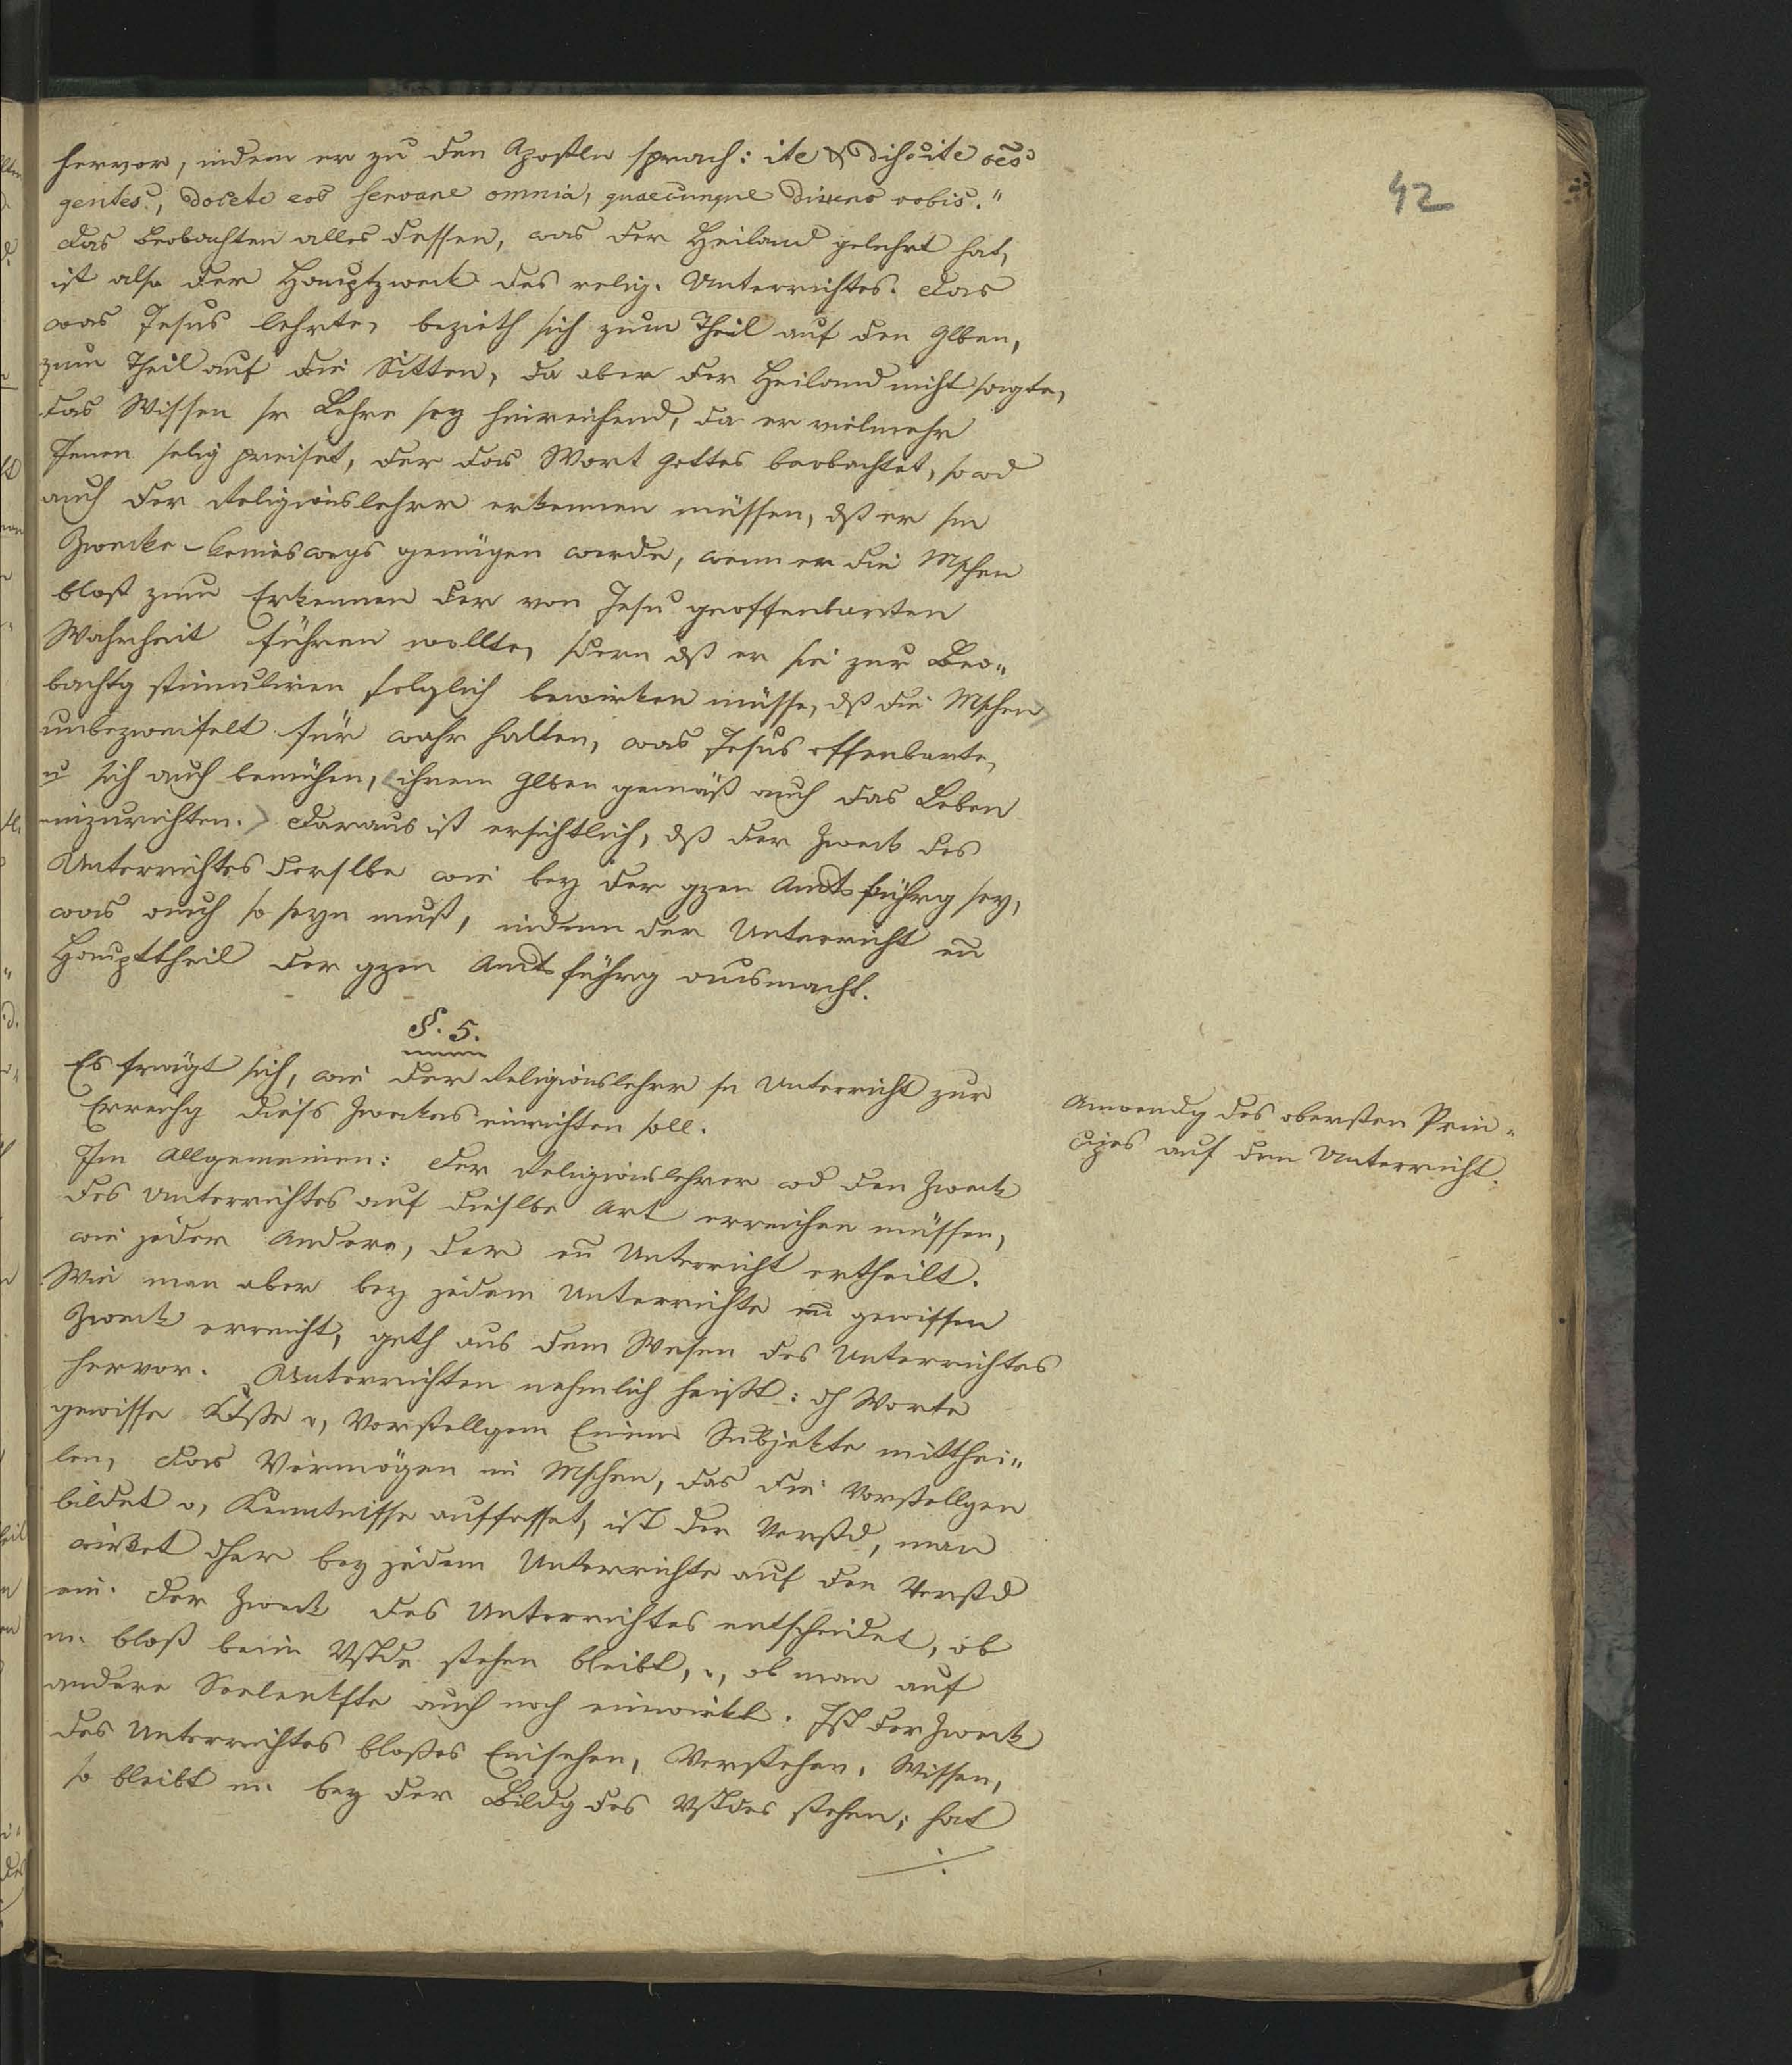 hervor, indem er zu den Aposteln sprach: ite & discite oēs
gentes, docete eos servare omnia, quaecunque dixero vobis."
das Beobachten alles dessen, was der Heiland gelehrt hat,
ist also der Hauptzweck des relig. Unterrichtes. Das
was Jesus lehrte, bezieth sich zum Theil auf den Glben,
zum Theil auf die Sitten, da aber der Heiland nicht sagte,
das Wissen sr Lehre sey hinreichend, da er vielmehr
Jenen selig preiset, der das Wort Gottes beobachtet, so wd
auch der Religionslehrer erkennen müssen, dß er sm
Zwecke keineswegs genügen werde, wenn er die Mschen
bloß zum Erkennen der von Jesu geoffenbarten
Wahrheit führen wollte, sdern dß er sie zur Beo„
bachtg stimuliren folglich bewirken müsse, dß die Mschen
unbezweifelt für wahr halten, was Jesus offenbarte,
u sich auch bemühen, ihrem Glben gemäß auch das Leben
einzurichten. Daraus ist ersichtlich, dß der Zweck des
Unterrichtes derslbe wie bey der gzen Amtsführg sey,
was auch so seyn muß, indem der Unterricht en
Haupttheil der gzen Amtsführg ausmacht.
§. 5.
Es frägt sich, wie der Religionslehrer sn Unterricht zur
Erreichg dieses Zweckes einrichten soll.
Im Allgemeinen: Der Religionslehrer wd den Zweck
des Unterrichtes auf dieslbe Art erreichen müssen,
wie jeder Andere, der en Unterricht ertheilt.
Wie man aber bey jedem Unterrichte en gewissen
Zweck erreicht, geth aus dem Wesen des Unterrichtes
hervor. Unterrichten nehmlich heißt: dh Worte
gewisse Ktße u, Vorstellgen Einem Subjekte mitthei„
len, das Vermögen im Mschen, das die Vorstellgen
bildet u, Kenntnisse auffasset, ist der Verstd, man
wirket dher bey jedem Unterrichte auf den Verstd
ein. Der Zweck des Unterrichtes entscheidet, ob
m. bloß beim Vstde stehen bleibt, u, ob man auf
andere Seelenkfte auch noch einwirkt. Ist der Zweck
des Unterrichtes bloßes Einsehen, Verstehen, Wissen,
so bleibt m. bey der Bildg des Vstdes stehen; hat
42
Anwendg des obersten Prin„
cipes auf den Unterricht.